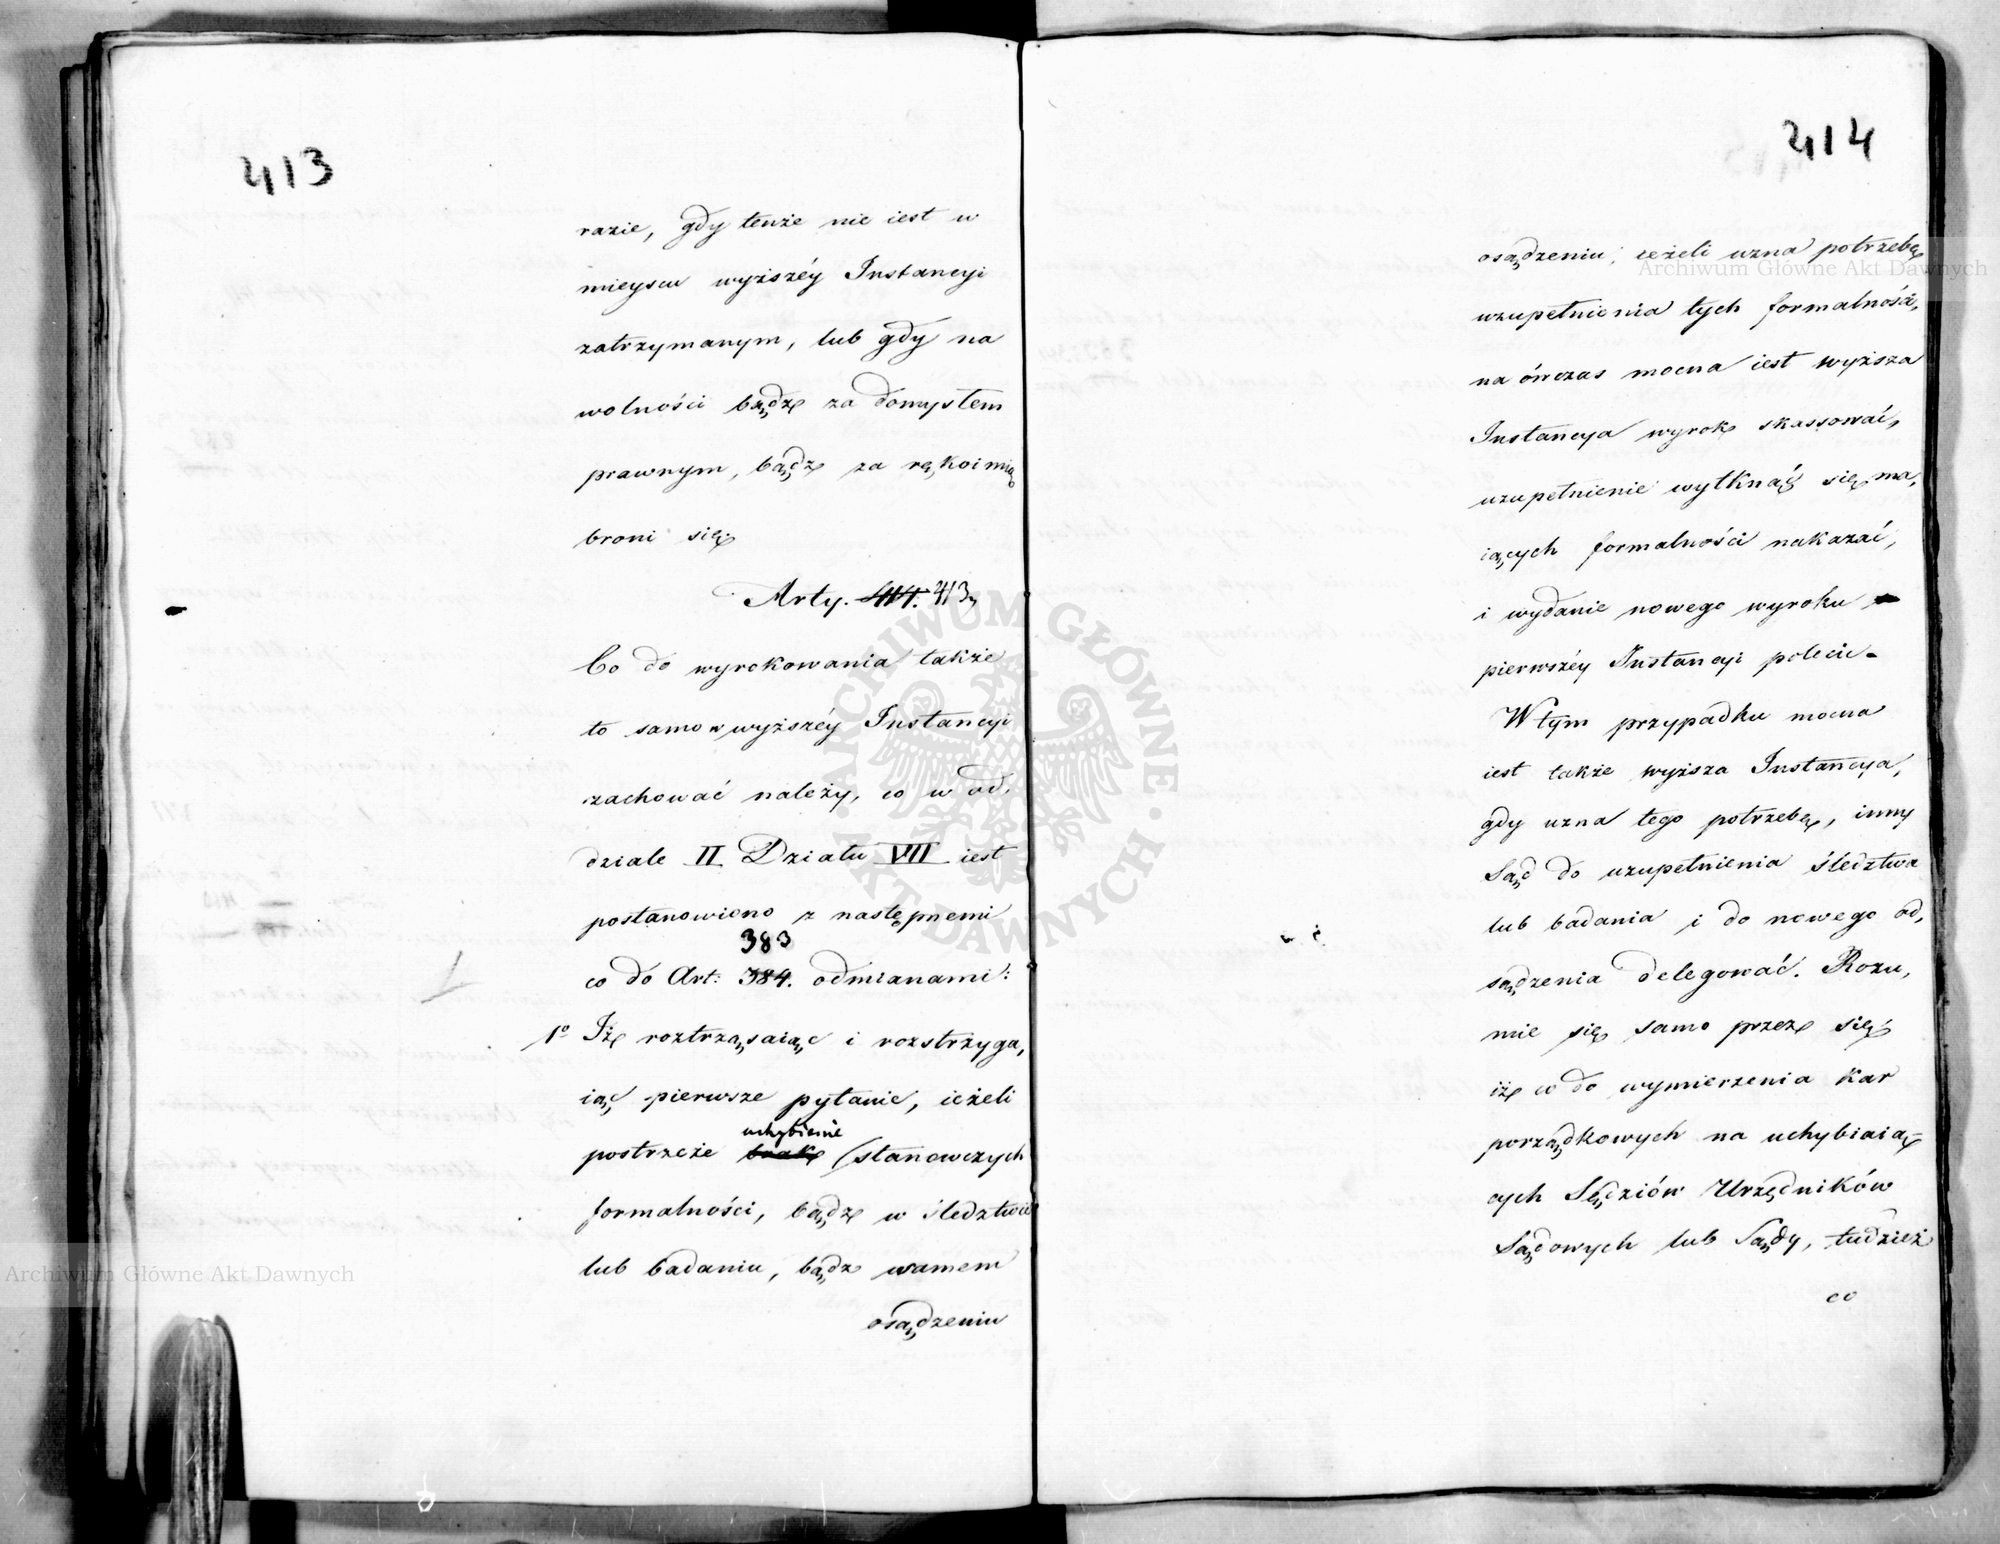 413
razie, gdy tenże nie iest w
mieyscu wyższéy Instancyi
zatrzymanym, lub gdy na
wolności bądz za domysłem
prawnym, bądz za rękoimią
broni się.
Arty. 414. 413,
Co do wyrokowania także
to samo w wyższéy Instancyi
zachować należy, co w od,
dziale II Działu VII iest
postanowiono z następnemi
383
co do Art: 384. odmianami:
1º Iż roztrząsaiąc i rozstrzyga,
iąc pierwsze pytanie, ieżeli
uchybienie
postrzeże brak stanowczych
formalności, bądz w śledztwie
lub badaniu, bądz w samem
osądzeniu
414
osądzeniu, ieżeli uzna potrzebę
uzupełnienia tych formalności,
na ówczas mocna iest wyższa
Instancya wyrok skassować,
uzupełnienie wytknąć się ma,
iących formalności nakazać,
i wydanie nowego wyroku
pierwszéy Instancyi polecić.
W tym przypadku mocna
iest także wyższa Instancya,
gdy uzna tego potrzebę, inny
Sąd do uzupełnienia śledztwa
lub badania i do nowego od,
sądzenia delegować. Rozu,
mie się samo przez się
iż co do wymierzenia kar
porządkowych na uchybiaią=
cych Sędziów Urzędników
Sądowych lub Sądy, tudzież
co
Archiwum Główne Akt Dawnych
Archiwum Główne Akt Dawnych
ARCHIWUM GŁÓWNE AKT DAWNYCH